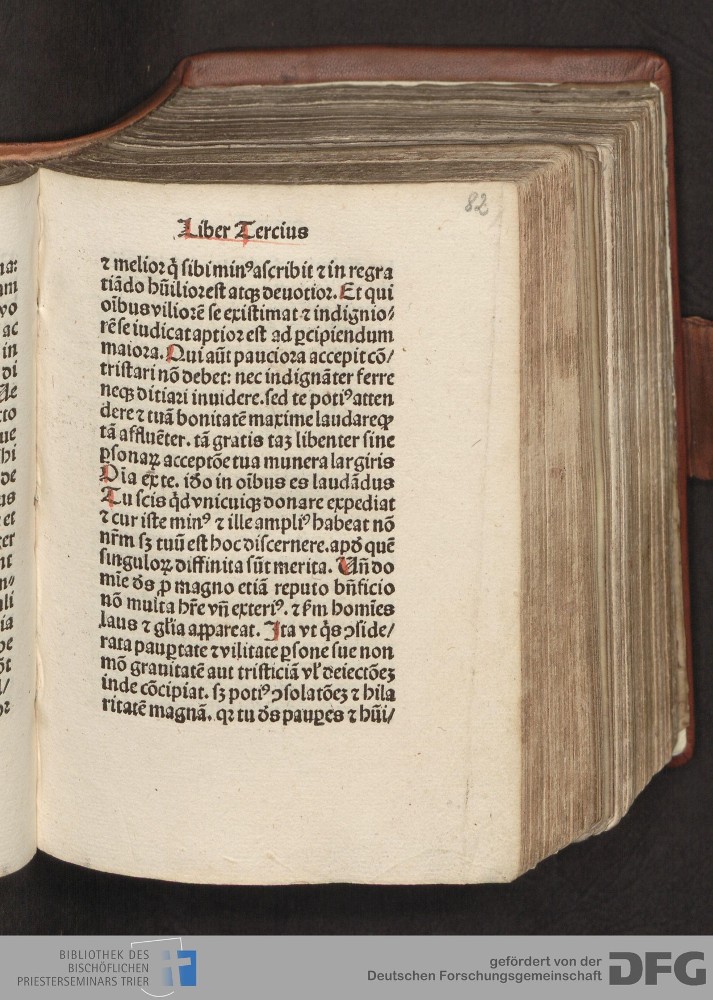 82
Liber Tercius
⁊ melior q̄ sibi minꝰ ascribit ⁊ in regra
tiādo hūilior est atqꝫ deuotior. Et qui
oībus viliorē se existimat ⁊ indignio/
rē se iudicat aptior est ad ꝑcipiendum
maiora. Qui aūt pauciora accepit cō/
tristari nō debet: nec indignāter ferre
neqꝫ ditiari inuidere. sed te potiꝰ atten
dere ⁊ tuā bonitatē maxime laudare qꝫ
tā affluēter. tā gratis taꝫ libenter sine
ꝑsonaꝝ acceptōe tua munera largiris
Oīa ex te. iđo in oībus es laudādus
Tu scis qđ vnicuiqꝫ donare expediat
⁊ cur iste minꝰ ⁊ ille ampliꝰ habeat nō
nr̄m sꝫ tuū est hoc discernere. apđ quē
singuloꝝ diffinita sūt merita. Vñ do
mīe đs ꝓ magno etiā reputo bn̄ficio
nō multa hr̄e vñ exteriꝰ. ⁊ ẜm homīes
laus ⁊ gl̄ia appareat. Ita vt q̇s ꝯside/
rata pauꝑtate ⁊ vilitate ꝑsone sue non
mō grauitatē aut tristiciā vl̓ deiectōeꝫ
inde cōcipiat. sꝫ potiꝰ ꝯsolatōeꝫ ⁊ hila
ritatē magnā. qꝛ tu đs pauꝑes ⁊ hūi/
BIBLIOTHEK DES
BISCHÖFLICHEN
PRIESTERSEMINARS TRIER
gefördert von der
Deutschen Forschungsgemeinschaft
DFG